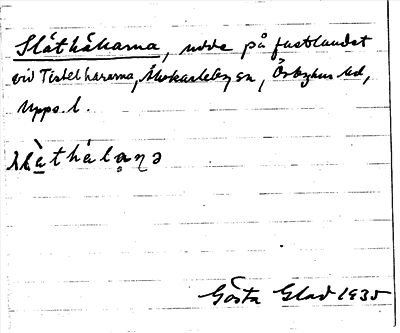 Slåthålarna, udde på fastlandet
vid Tistelhararna, Älvkarleby sn, Örbyhus hd,
Upps. l.
slåthålaṇə
Gösta Glad 1935